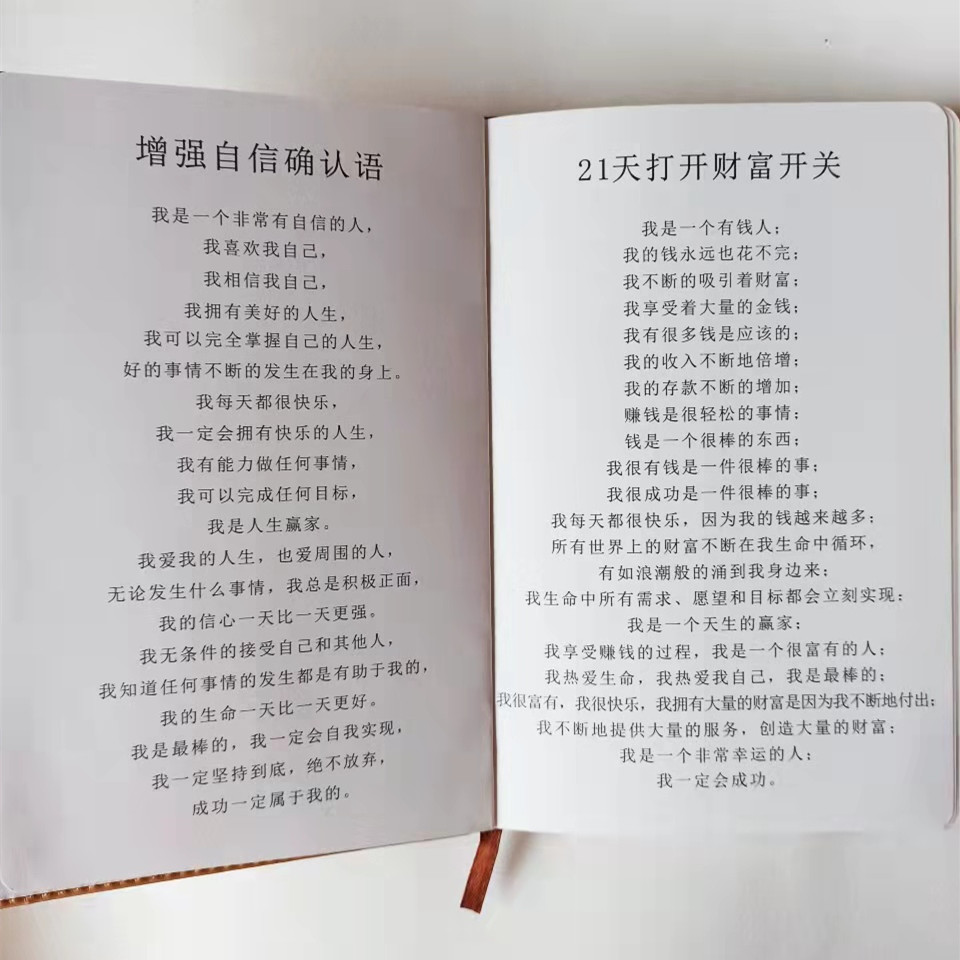 增强自信确认语
我是一个非常有自信的人，
我喜欢我自己，
我相信我自己，
我拥有美好的人生，
我可以完全掌握自己的人生，
好的事情不断的发生在我的身上。
我每天都很快乐，
我一定会拥有快乐的人生，
我有能力做任何事情，
我可以完成任何目标，
我是人生赢家。
我爱我的人生，也爱周围的人，
无论发生什么事情，我总是积极正面，
我的信心一天比一天更强。
我无条件的接受自己和其他人，
我知道任何事情的发生都是有助于我的，
我的生命一天比一天更好。
我是最棒的，我一定会自我实现，
我一定坚持到底，绝不放弃，
成功一定属于我的。
21天打开财富开关
我是一个有钱人；
我的钱永远也花不完；
我不断的吸引着财富；
我享受着大量的金钱；
我有很多钱是应该的；
我的收入不断地倍增；
我的存款不断的增加；
赚钱是很轻松的事情；
钱是一个很棒的东西；
我很有钱是一件很棒的事；
我很成功是一件很棒的事；
我每天都很快乐，因为我的钱越来越多；
所有世界上的财富不断在我生命中循环，
有如浪潮般的涌到我身边来；
我生命中所有需求、愿望和目标都会立刻实现；
我是一个天生的赢家；
我享受赚钱的过程，我是一个很富有的人；
我热爱生命，我热爱我自己，我是最棒的；
我很富有，我很快乐，我拥有大量的财富是因为我不断地付出；
我不断地提供大量的服务，创造大量的财富；
我是一个非常幸运的人；
我一定会成功。